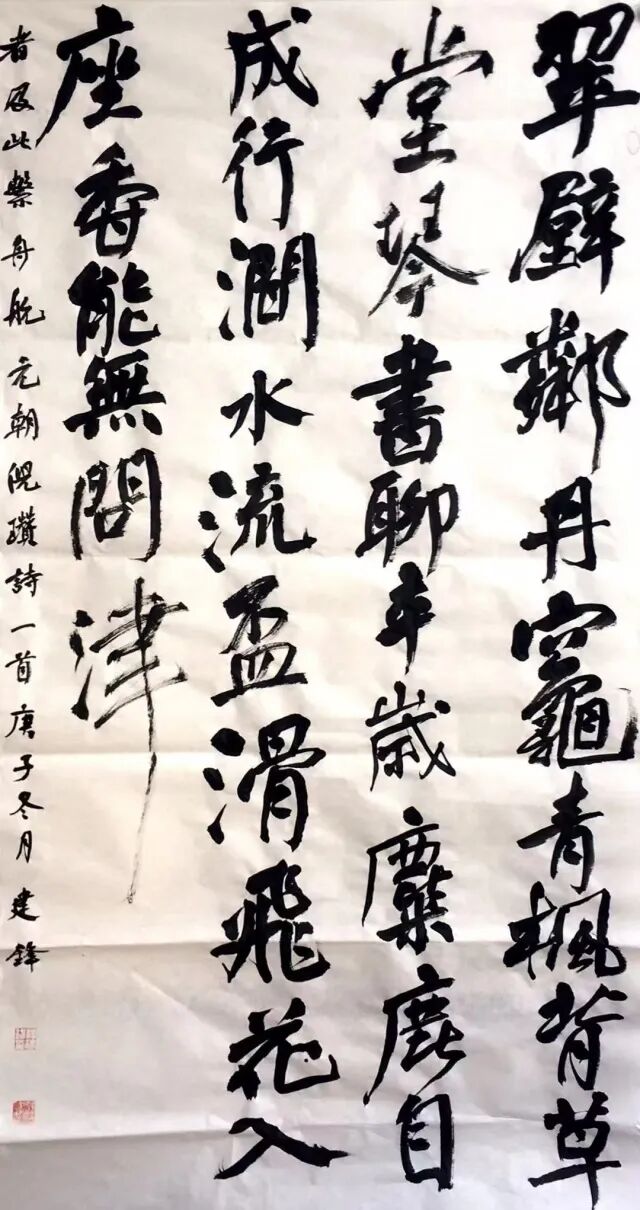 翠壁鄰丹竈青楓背草
堂琴書聊卒歲麋鹿自
成行澗水流盃滑飛花入
座香能無問津
者及此繫舟航元朝倪瓚詩一首庚子冬月建鋒